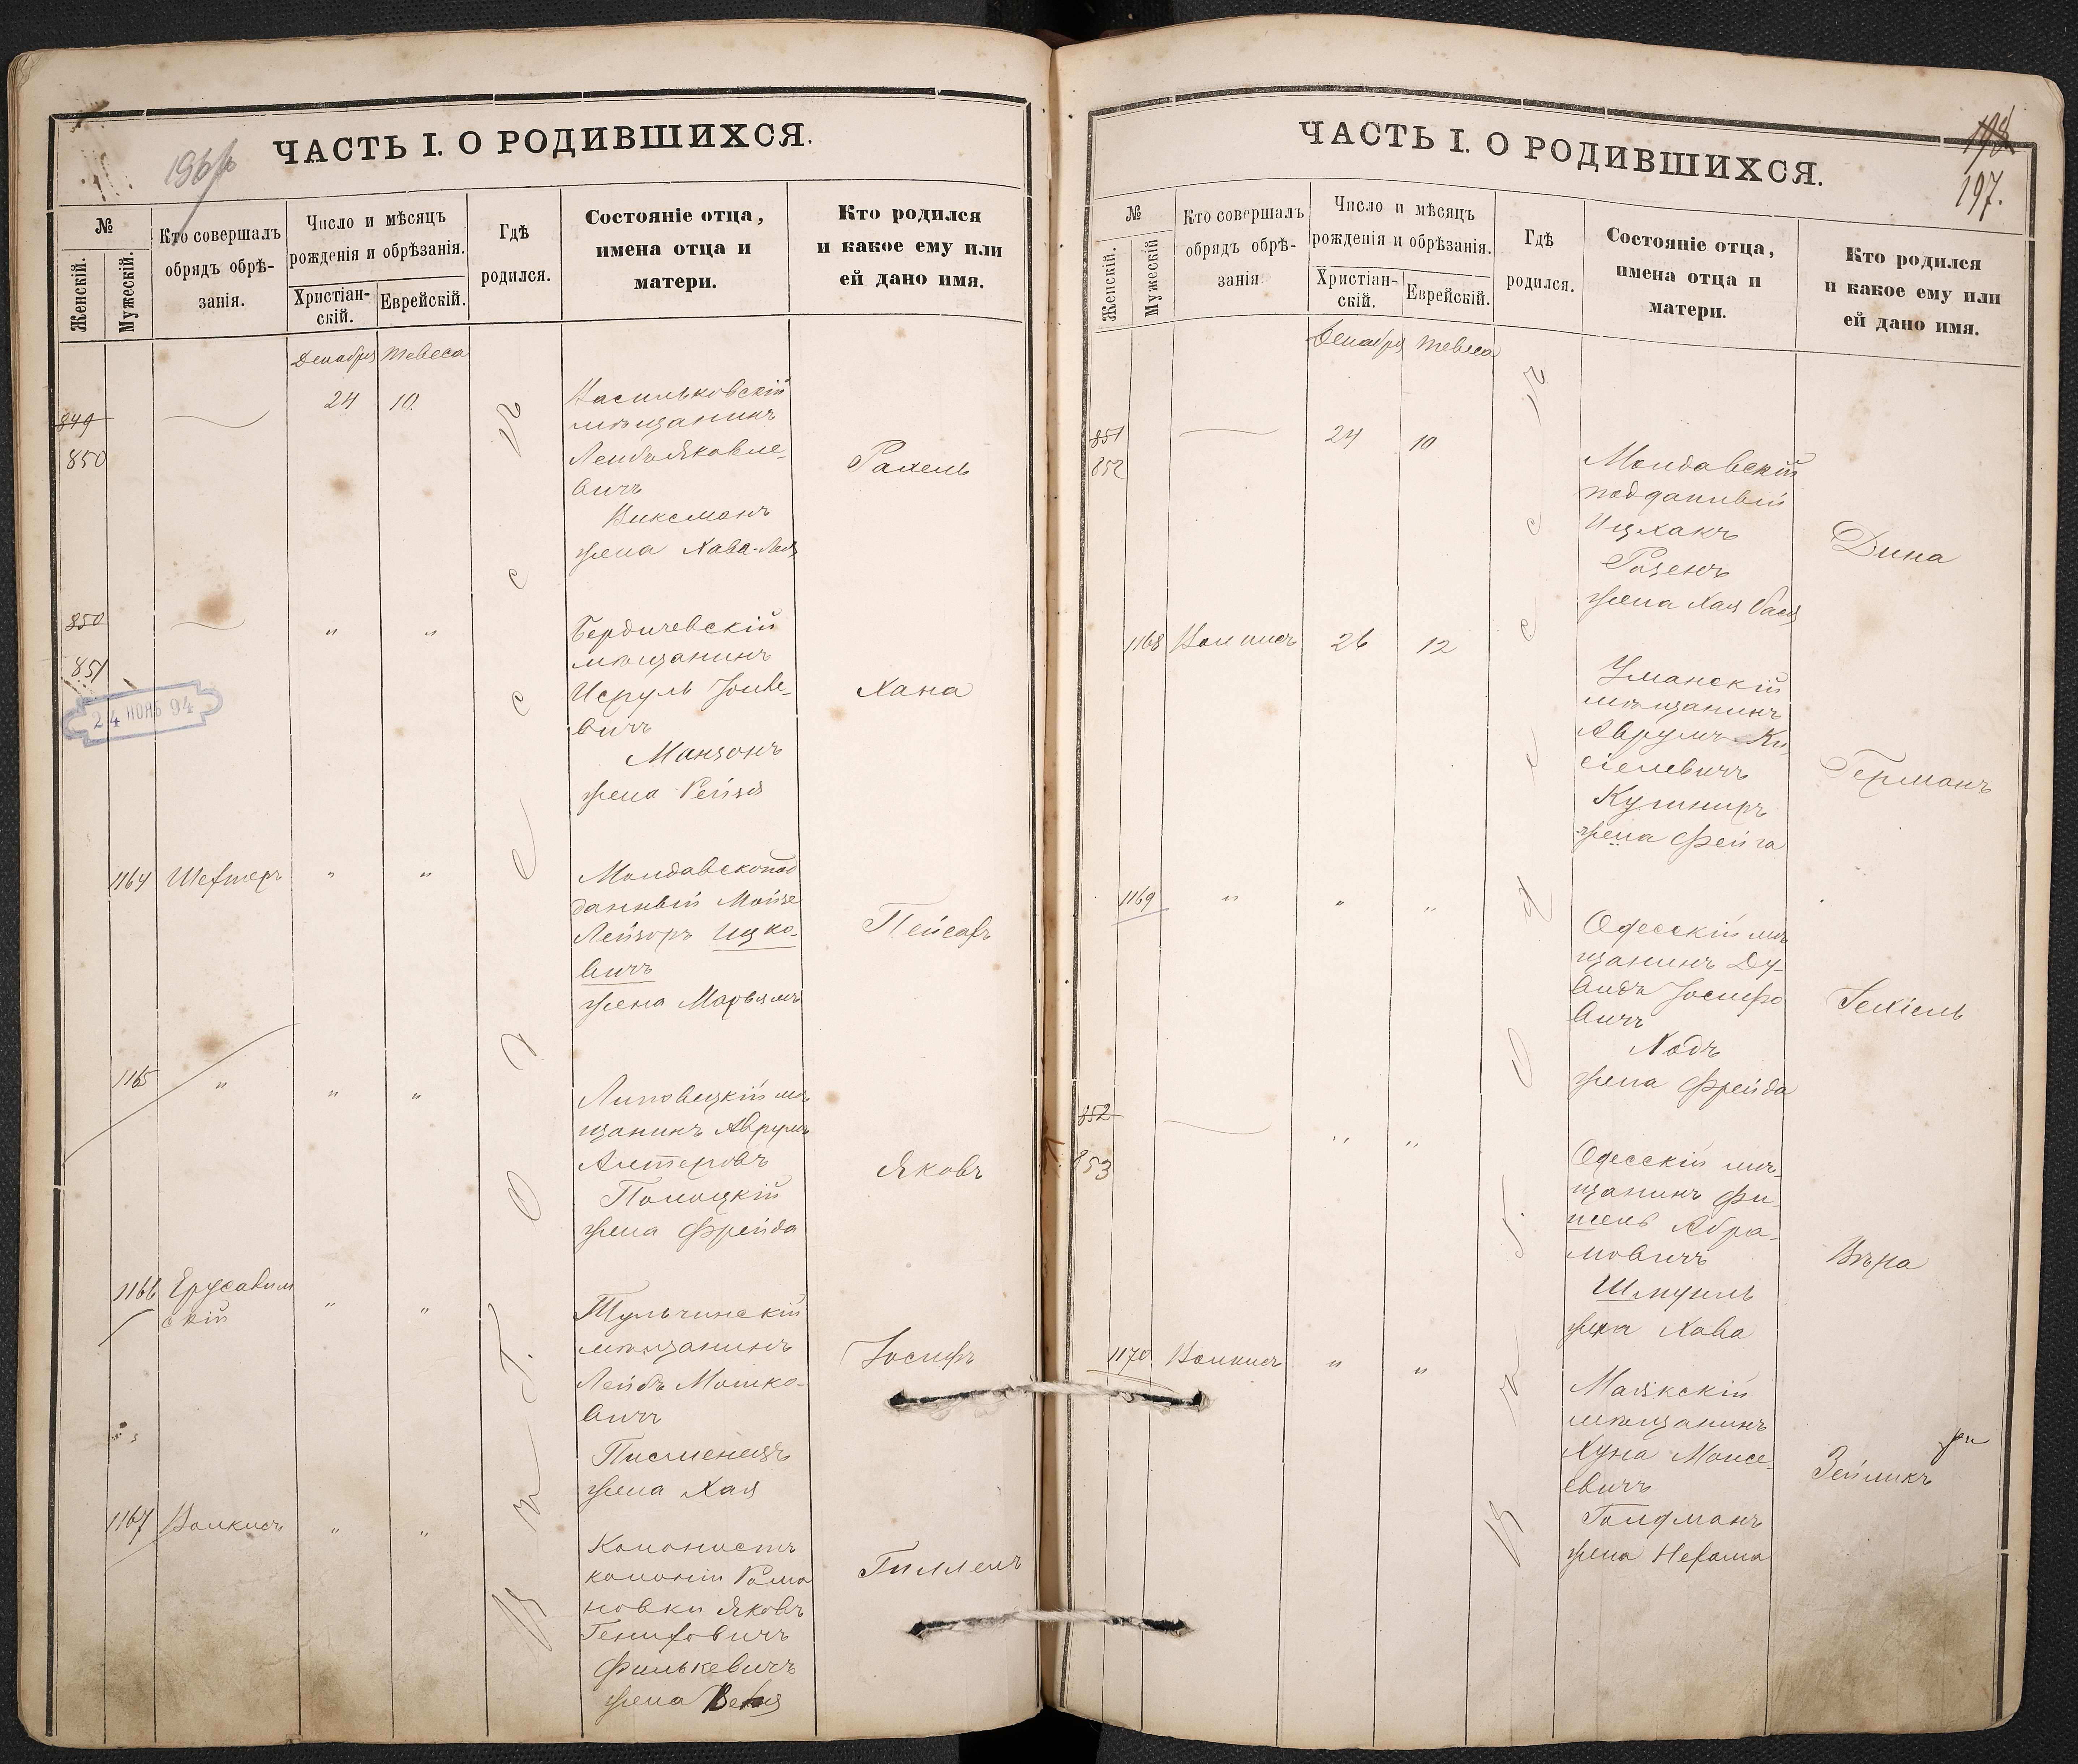 196
ЧАСТЬ I. О РОДИВШИХСЯ.
№
Женскій.
Мужескій.
Кто совершалъ
обрядъ обрѣ-
занія.
Число и мѣсяцъ
рожденія и обрѣзанія.
Христіан-
скій.
Еврейскій.
Гдѣ
родился.
Состояніе отца,
имена отца и
матери.
Кто родился
и какое ему или
ей дано имя.
Декабря Тевеса
849
850
24 10.
Васильковскій
мѣщанинъ
Лейбъ Яковле-
вичъ
Виксманъ
жена Хава-Лея
Рахель
850
851
24 НОЯБ 94
" "
Бердичевскій
мѣщанинъ
Исруль
вичъ
Манзонъ
жена Рейзя
Хана
1164 Шефтеръ " "
Молдавскопод
данный Мойзе
Лейзоръ Ицко-
вичъ
жена Марьямъ
Пейсахъ
1165 " " "
Липовецкій мѣ
щанинъ Аврумъ
Алтеровъ
Полоцкій
жена Фрейда
Яковъ
1166 Ерусалим
скій " "
Тульчинскій
мѣщанинъ
Лейбъ Мошко-
вичъ
Писменецъ
жена Хая
Іосифъ
1167 Волкисъ " "
Колонистъ
колоніи Рома
новки Яковъ
Гениховичъ
Филькевичъ
жена
Гиллель
Въ г. Одессѣ
ЧАСТЬ I. О РОДИВШИХСЯ.
198
197.
№
Женскій.
Мужескій
Кто совершалъ
обрядъ обрѣ-
занія
Число и мѣсяцъ
рожденія и обрѣзанія.
Христіан-
скій.
Еврейскій.
Гдѣ
родился.
Состояніе отца,
имена отца и
матери.
Кто родился
и какое ему или
ей дано имя.
Декабря Тевеса
851
852
24 10
Молдавскій
подданный
Ицхакъ
Розенъ
жена Хая Бася
Дина
1168 Волкисъ 26 12
Уманскій
мѣщанинъ
Аврумъ Ки
сіелевичъ
Кушниръ
жена Фейга
Германъ
1169 " " "
Одесскій мѣ
щанинъ Ду-
видъ Іосифо
вичъ
Ходъ
жена Фрейда
Іехіель
852
853
" "
Одесскій мѣ-
щанинъ Фи-
шель Абра-
мовичъ
Шмуиль
жена Хава
Вѣра
1170 Волкисъ " "
Маякскій
мѣщанинъ
Хуна Моисе-
евичъ
Голдманъ
жена Нехама
Зейликъ
Въ г. Одессѣ